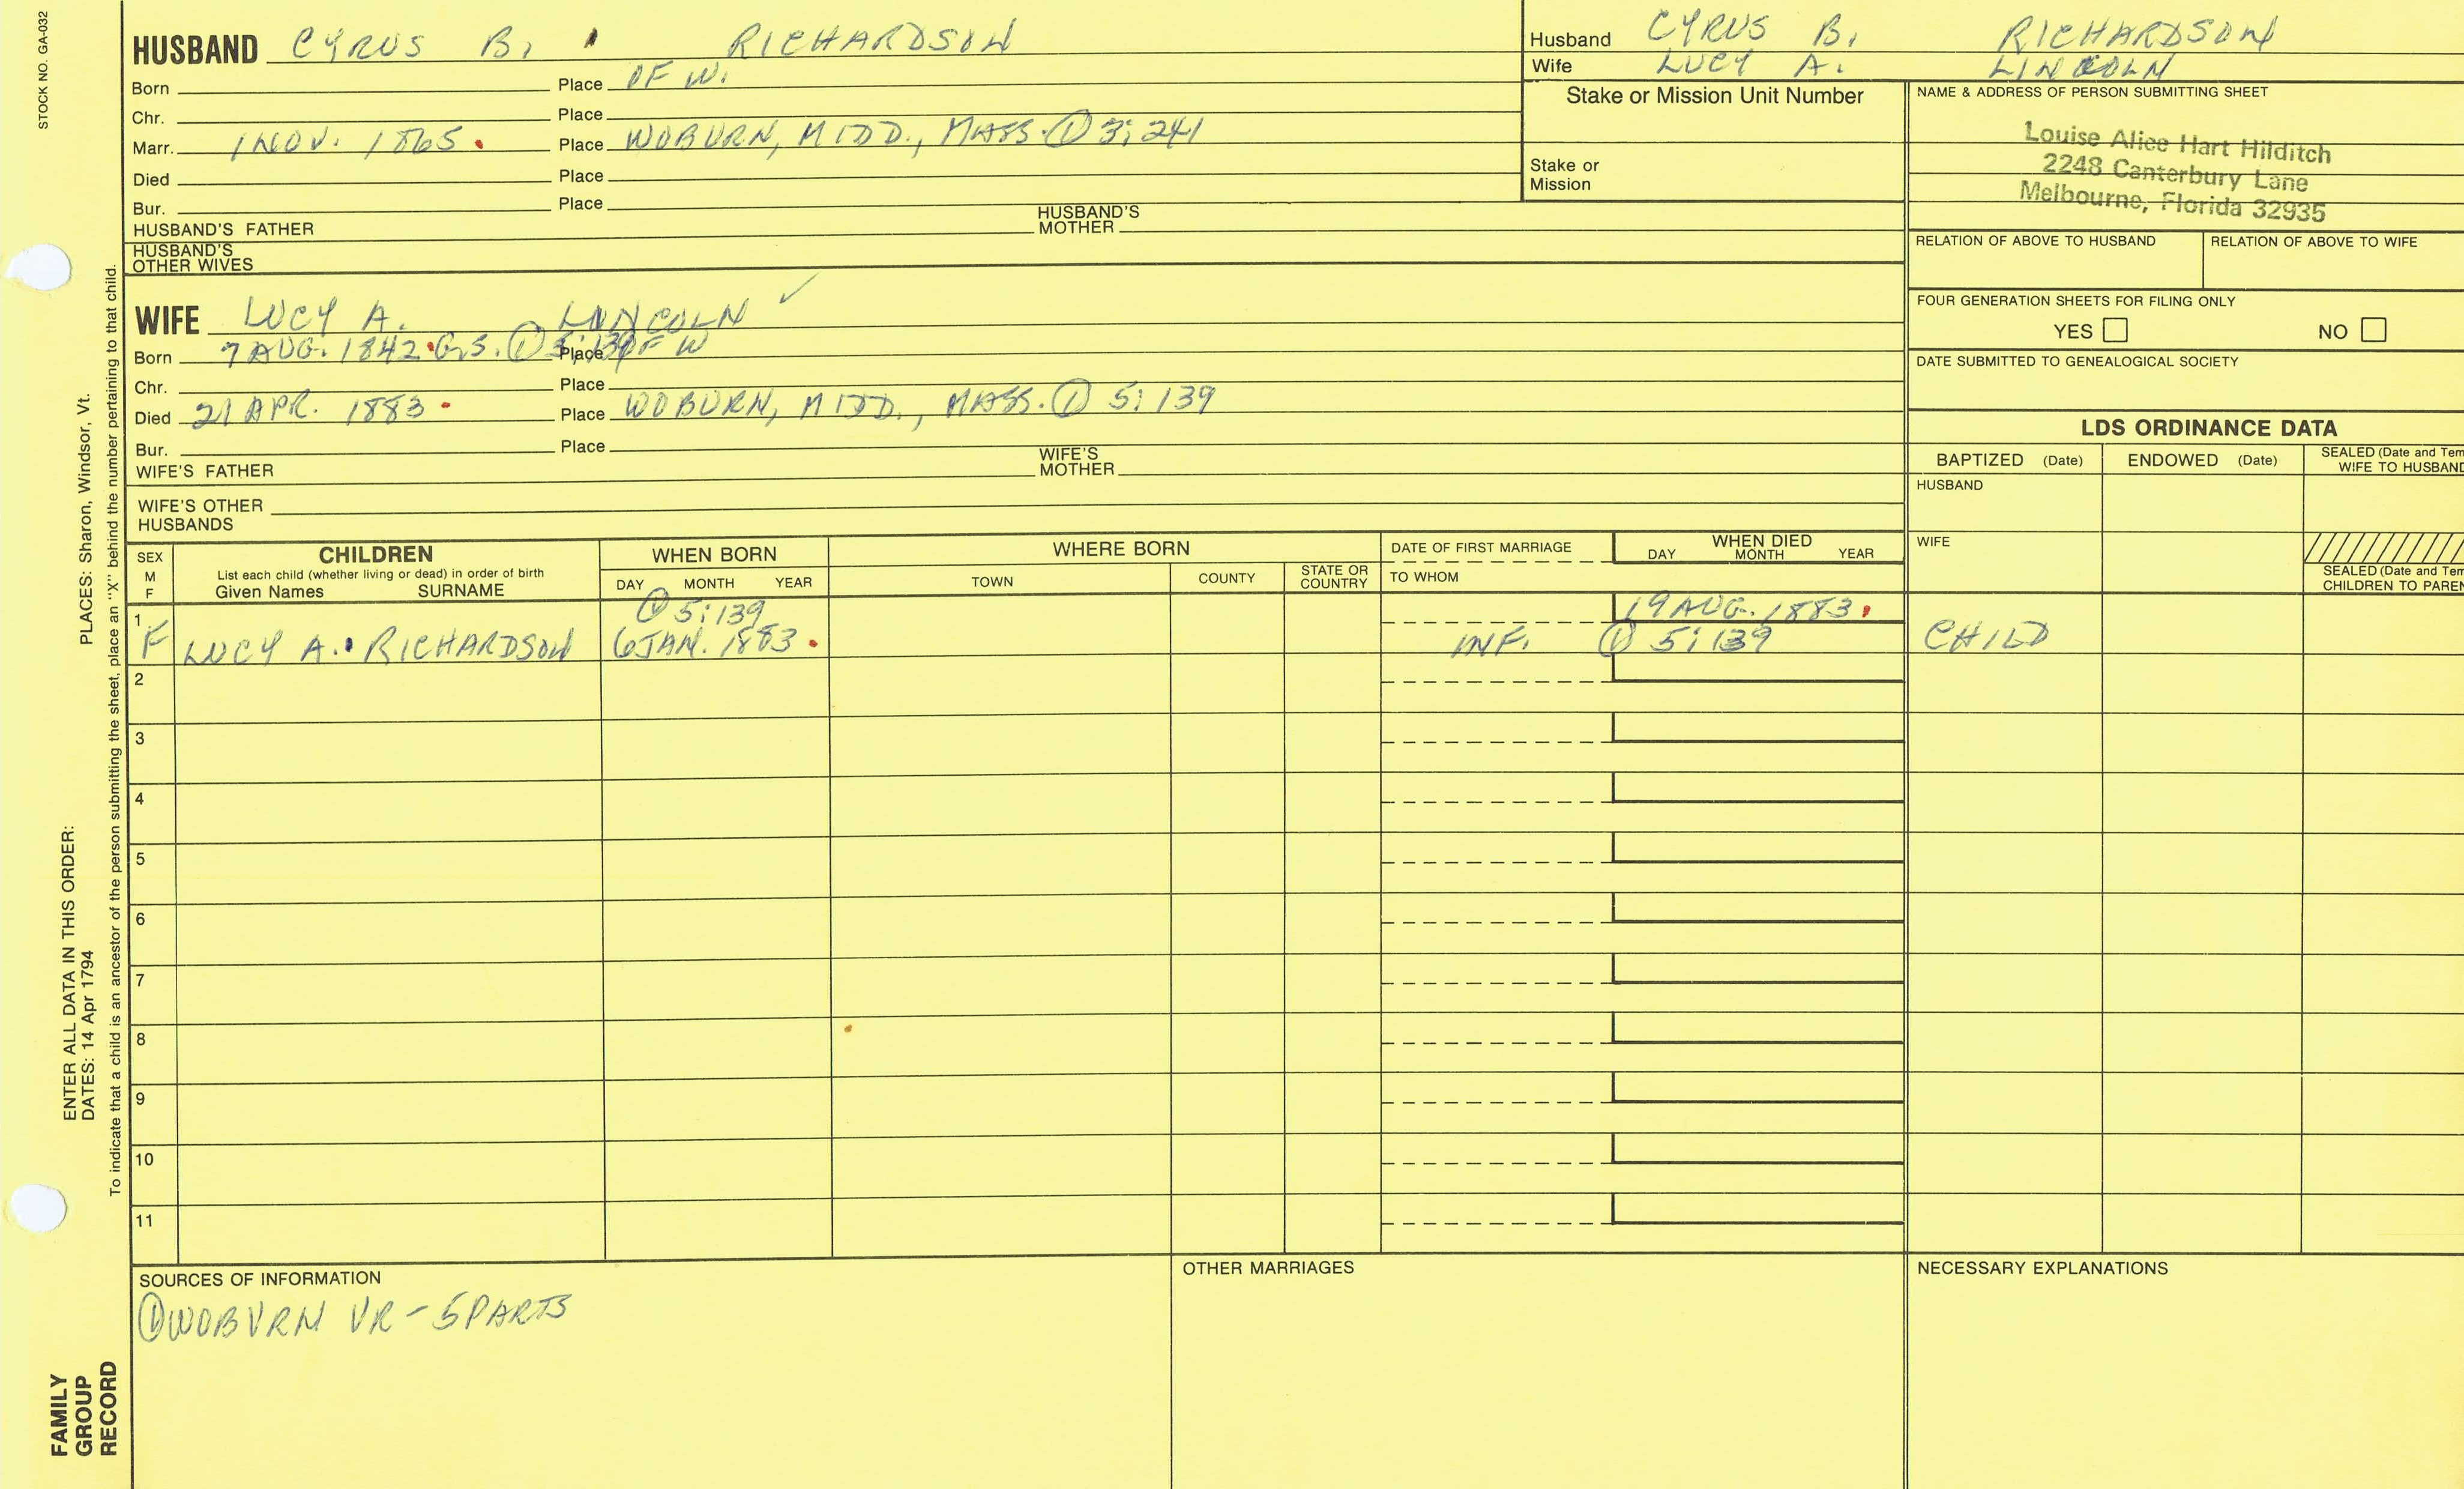 STOCK NO. GA-032
HUSBAND CYRUS B. RICHARDSON
Born Place OF W.
Chr. Place
Marr. 1 NOV. 1865. Place WOBURN, MIDD., MASS. ① 3:241
Died Place
Bur. Place
HUSBAND'S FATHER HUSBAND'S MOTHER
HUSBAND'S OTHER WIVES
Husband CYRUS B. RICHARDSON
Wife LUCY A. LINCOLN
Stake or Mission Unit Number
Stake or Mission
NAME & ADDRESS OF PERSON SUBMITTING SHEET
Louise Alice Hart Hilditch
2248 Canterbury Lane
Melbourne, Florida 32935
RELATION OF ABOVE TO HUSBAND RELATION OF ABOVE TO WIFE
FOUR GENERATION SHEETS FOR FILING ONLY
YES NO
DATE SUBMITTED TO GENEALOGICAL SOCIETY
WIFE LUCY A. LINCOLN ✓
Born 7 AUG. 1842. G.S. ① 5:139 Place OF W
Chr. Place
Died 21 APR. 1883. Place WOBURN, MIDD., MASS. ① 5:139
Bur. Place
WIFE'S FATHER WIFE'S MOTHER
WIFE'S OTHER HUSBANDS
LDS ORDINANCE DATA
BAPTIZED (Date) ENDOWED (Date) SEALED (Date and Tem
WIFE TO HUSBAND
HUSBAND
WIFE
SEALED (Date and Tem
CHILDREN TO PAREN
SEX
M
F
CHILDREN
List each child (whether living or dead) in order of birth
Given Names SURNAME
WHEN BORN
DAY MONTH YEAR
WHERE BORN
TOWN COUNTY STATE OR COUNTRY
DATE OF FIRST MARRIAGE
TO WHOM
WHEN DIED
DAY MONTH YEAR
1 ① 5:139 19 AUG. 1883.
F LUCY A. RICHARDSON 6 JAN. 1883. INF. ① 5:139 CHILD
2
3
4
5
6
7
8
9
10
11
SOURCES OF INFORMATION
① WOBURN VR - 5 PARTS
OTHER MARRIAGES
NECESSARY EXPLANATIONS
ENTER ALL DATA IN THIS ORDER:
DATES: 14 Apr 1794 PLACES: Sharon, Windsor, Vt.
To indicate that a child is an ancestor of the person submitting the sheet, place an "X" behind the number pertaining to that child.
FAMILY
GROUP
RECORD